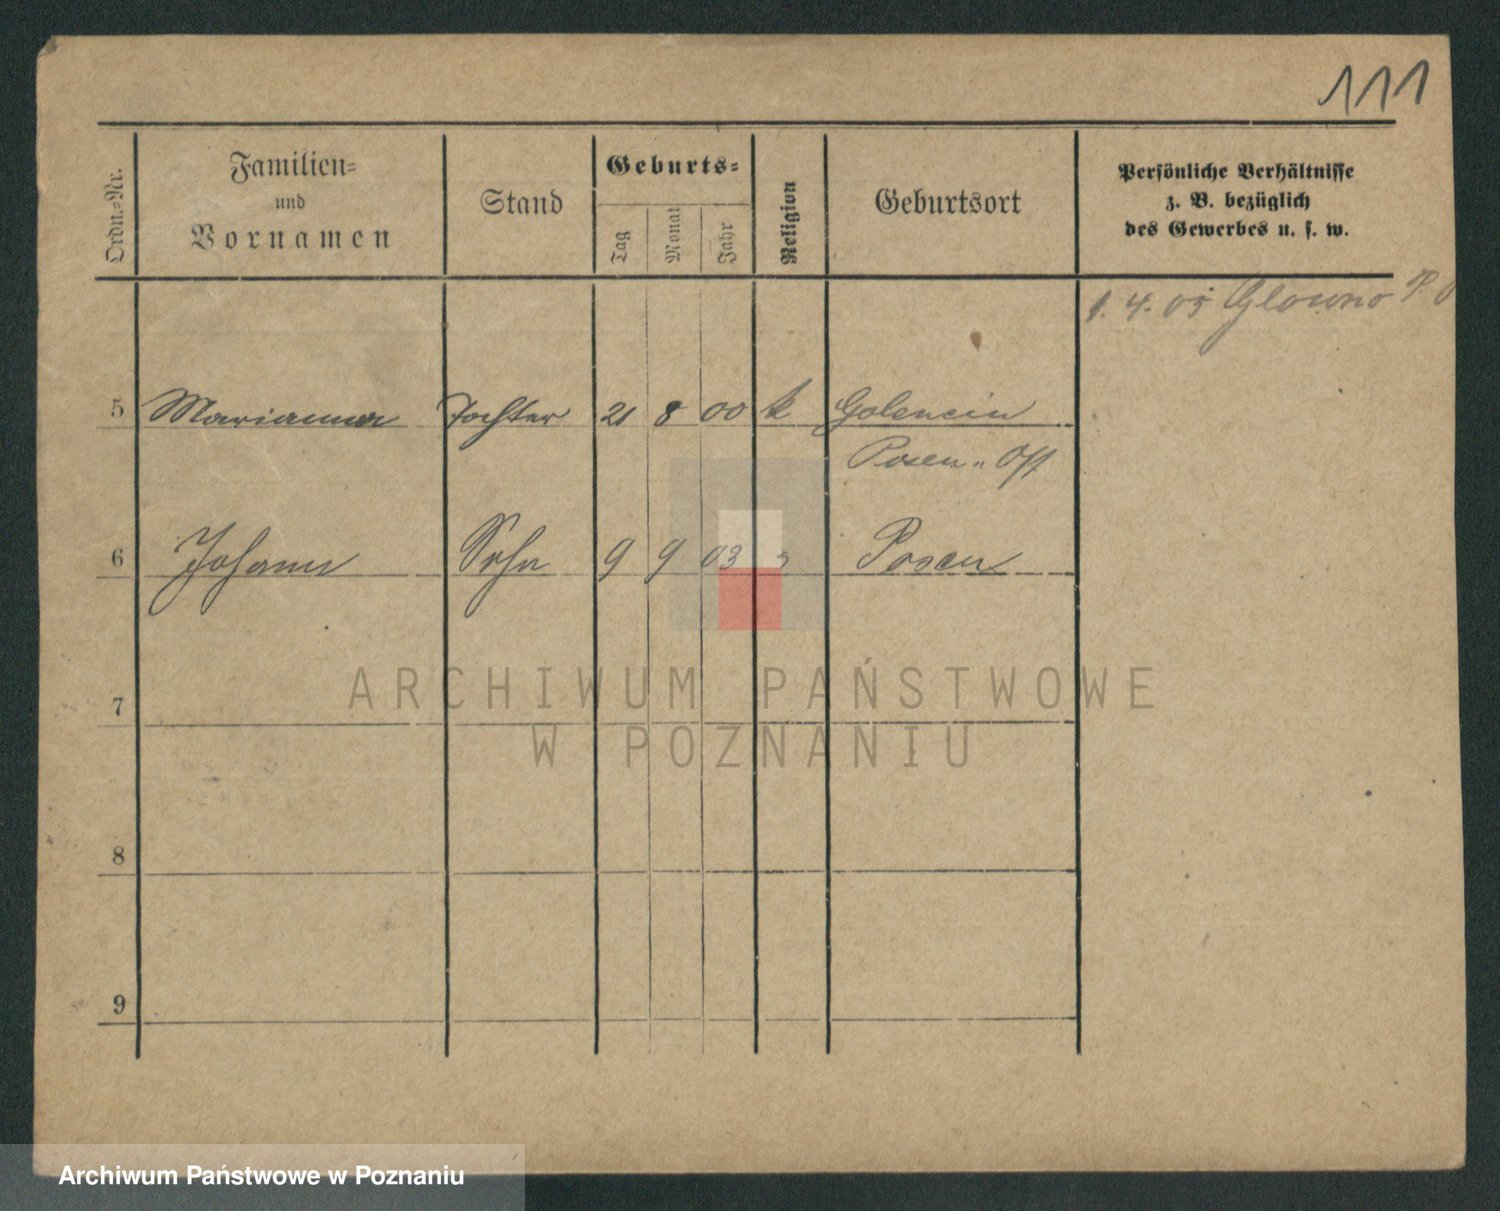 111
Ordn.-Nr.
Familien-
und
Vornamen
Stand
Geburts-
Tag
Monat
Jahr
Religion
Geburtsort
Persönliche Verhältnisse
z. B. bezüglich
des Gewerbes u. s. w.
1. 4. 05 Glowno P. O
5 Marianna Tochter 21 8 00 k Golencin
Posen-Ost
6 Johann Sohn 9 9 03 Posen
7
8
9
ARCHIWUM PAŃSTWOWE
W POZNANIU
Archiwum Państwowe w Poznaniu